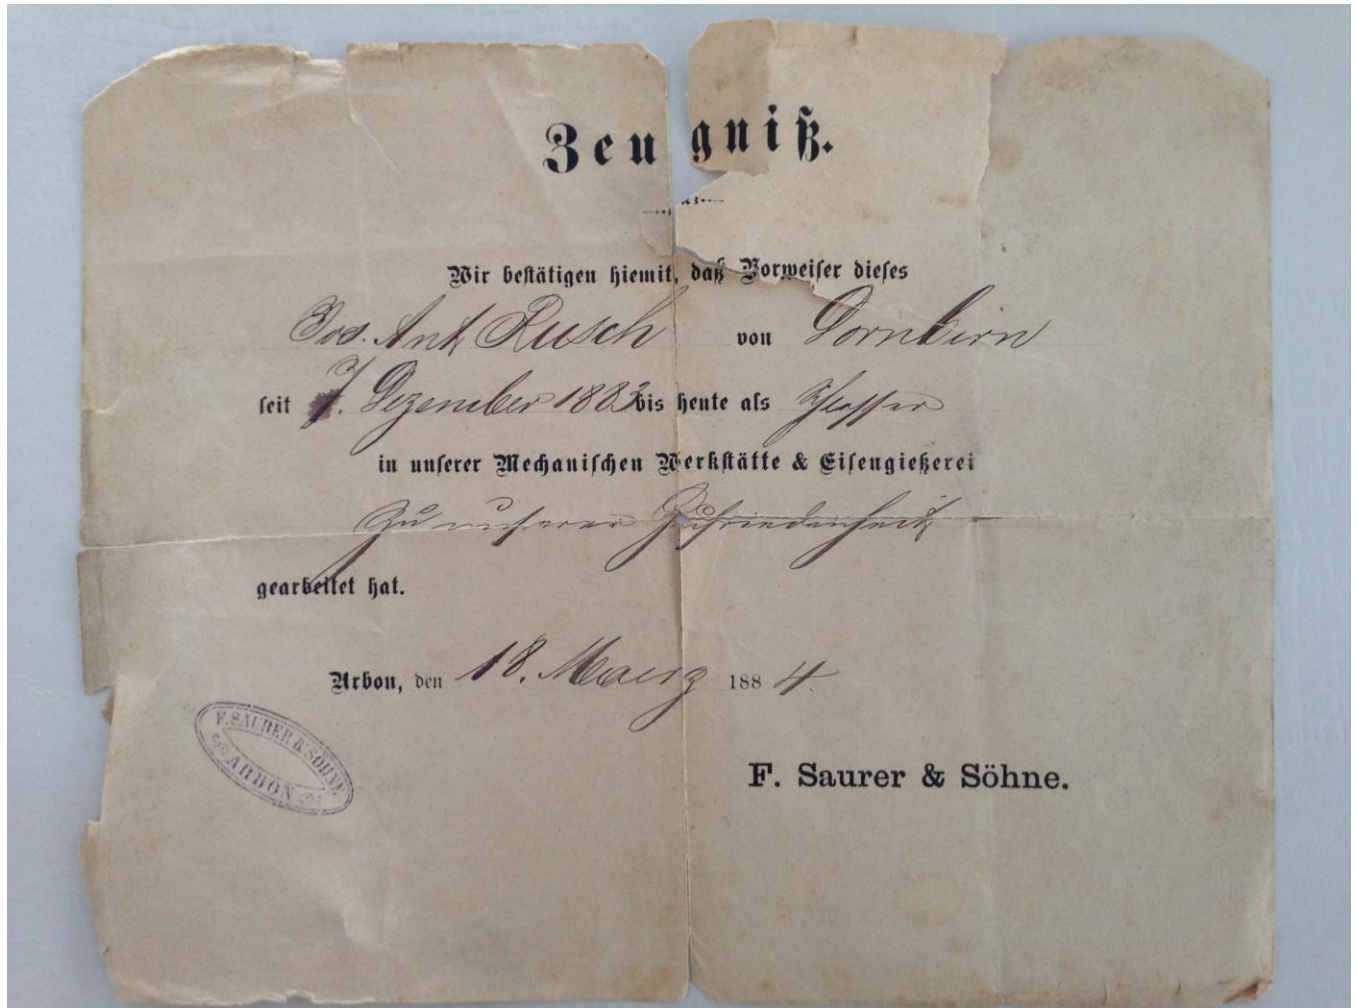 Zeugniß.
Wir bestätigen hiemit, daß Vorweiser dieses
Jos. Ant. Rusch von Dornbirn
seit 7. Dezember 1883 bis heute als Schlosser
in unserer Mechanischen Werkstätte & Eisengießerei
zu unserer Zufriedenheit
gearbeitet hat.
Arbon, den 18. Maerz 1884.
F. SAURER & SÖHNE.
ARBON
F. Saurer & Söhne.